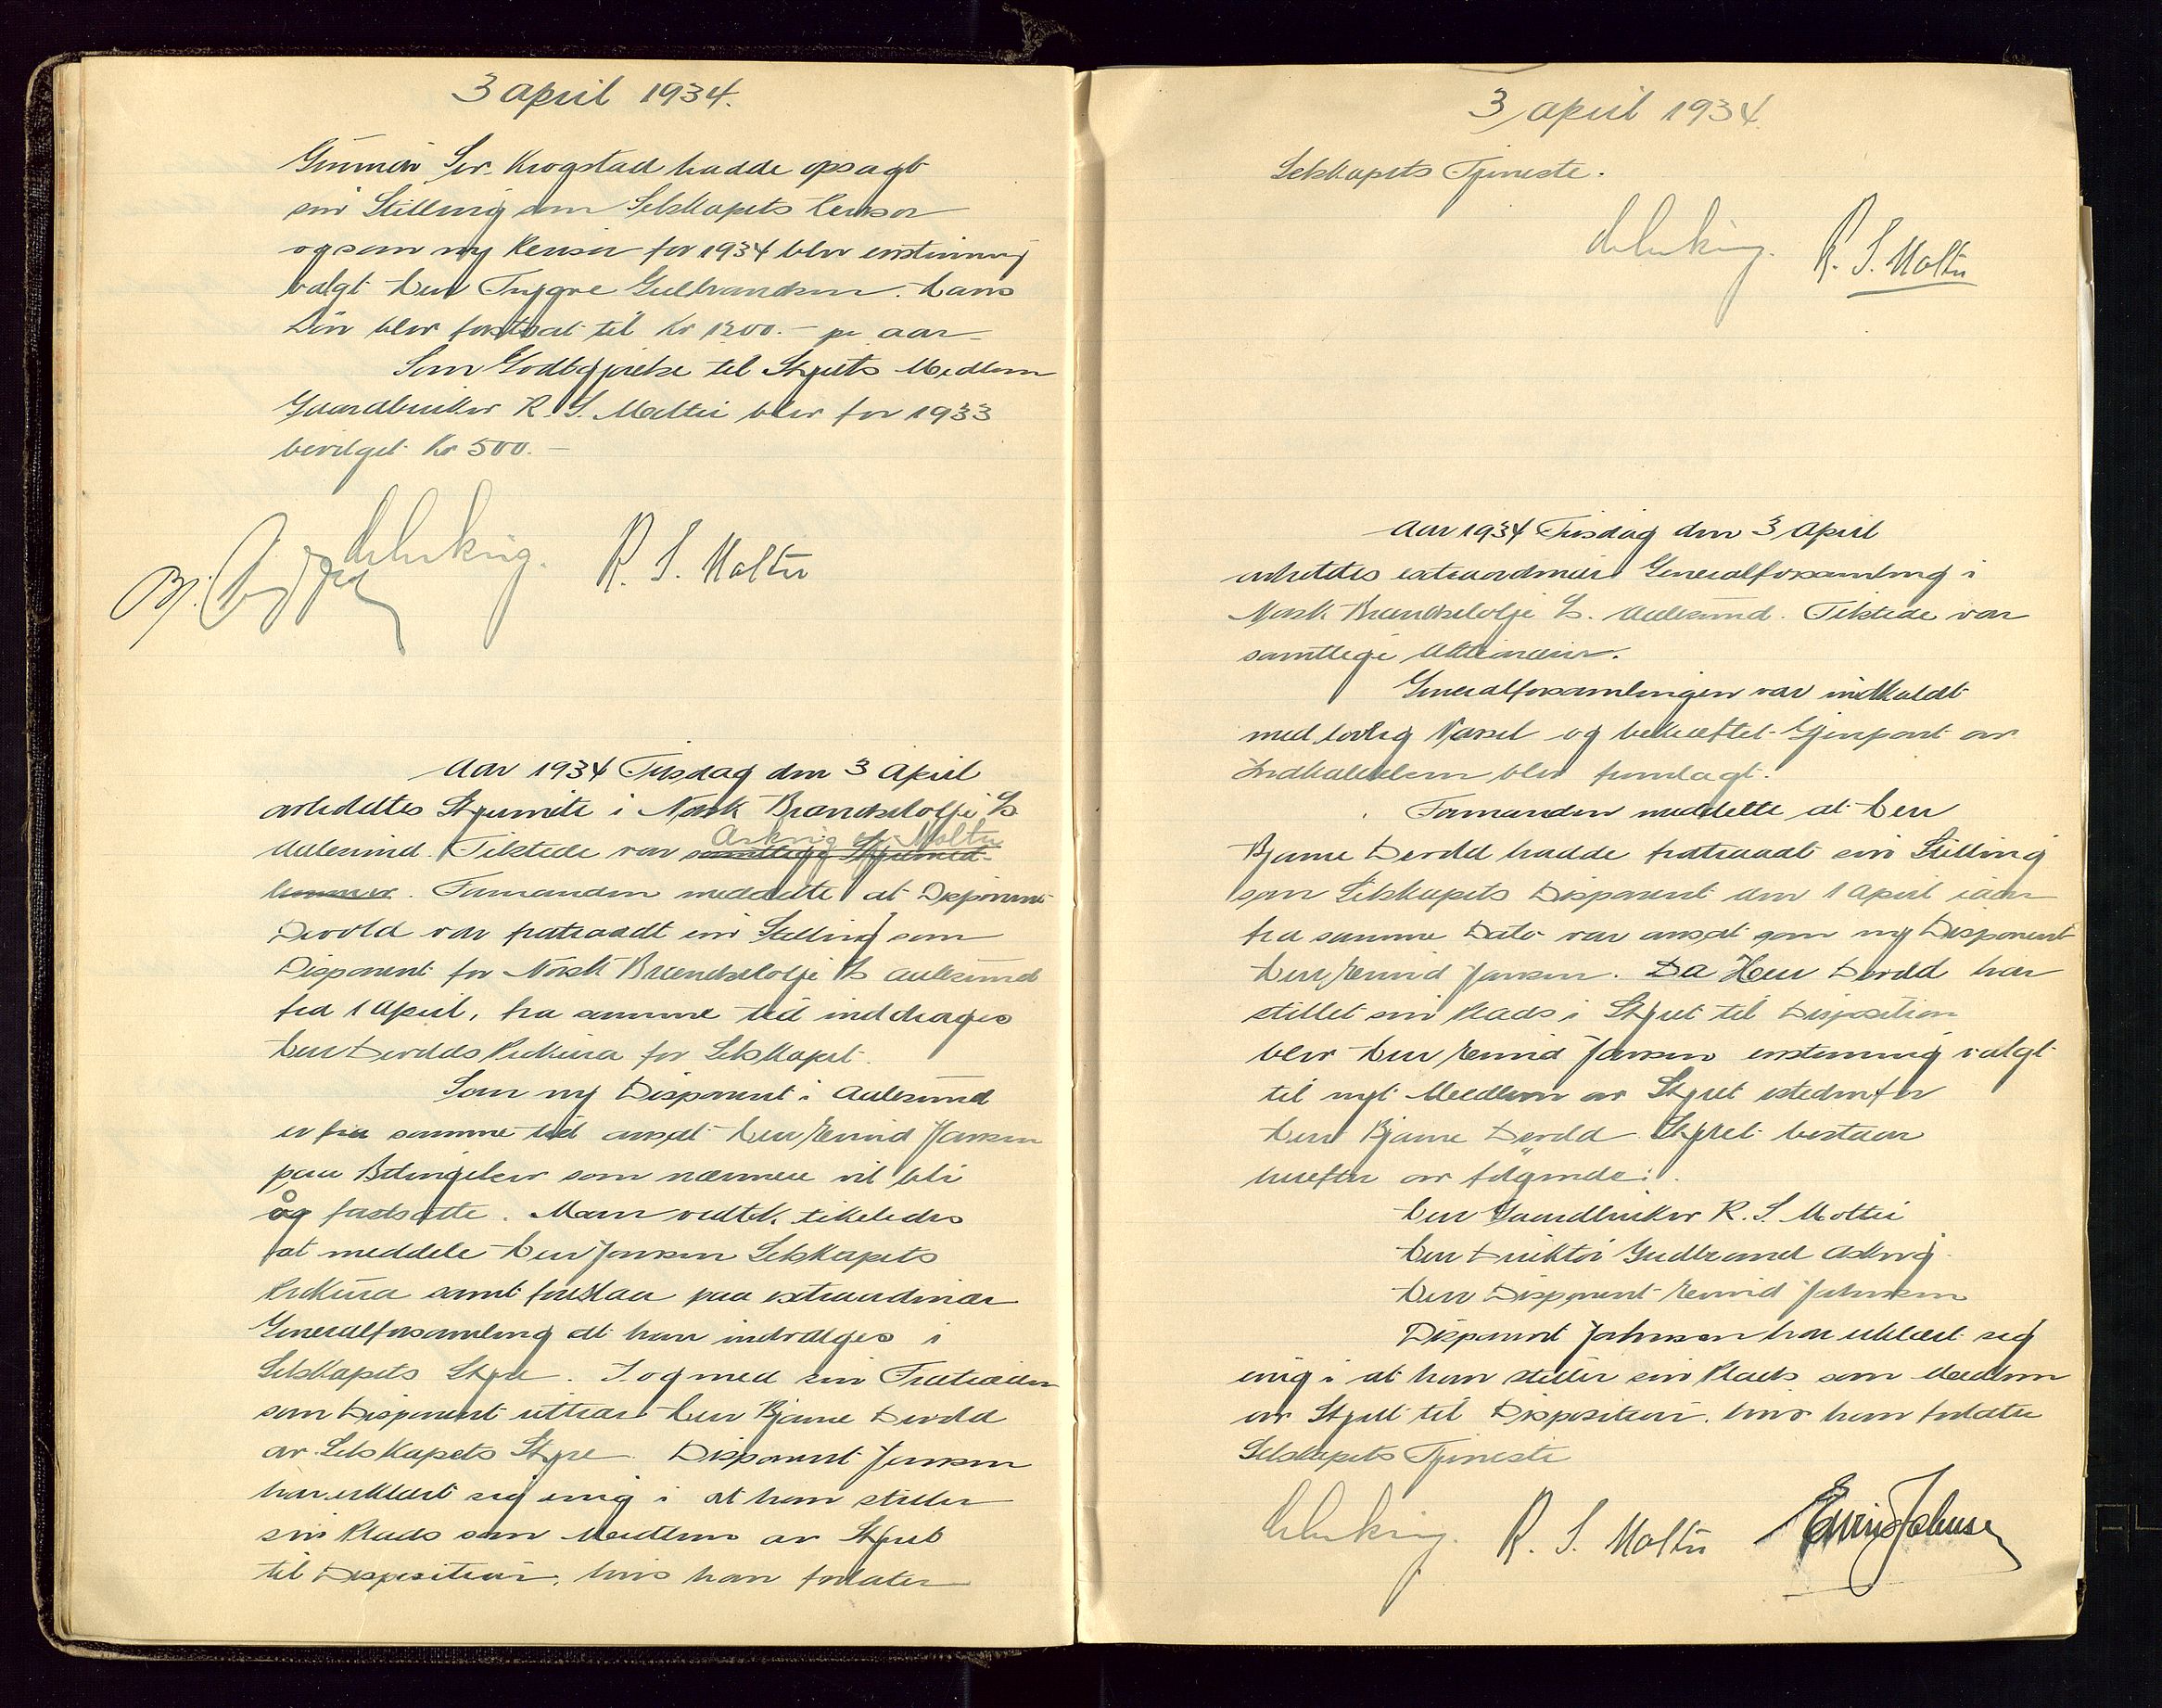 3 april 1934.
Gunnar Krogstad hadde opsagt
sin Stilling som Selskapets Revisor
og som ny Revisor for 1934 blev enstemmig
valgt Herr Trygve Gulbrandsen. Hans
Løn blev fastsat til Kr 1200.- pr aar
Som Godtgjørelse til Styrets Medlem
Gaardbruker R. S. Moltu blev for 1933
bevilget Kr 500.-
R. S. Moltu
Aar 1934 Tirsdag den 3 April
avholdtes Styremøte i Norsk Brændselolje A/S
Askvig og Moltu
Aalesund. Tilstede var samtlige Styremed-
lemmer. Formanden meddelte at Disponent
Devold var fratraadt sin Stilling som
Disponent for Norsk Brændselolje A/S Aalesund
fra 1 April, fra samme tid inddrages
Herr Devolds Prokura for Selskapet.
Som ny Disponent i Aalesund
er fra samme tid ansat Herr Eivind Jansen
paa Betingelser som nærmere vil bli
og fastsatte. Man vedtok likeledes
at meddele Herr Jansen Selskapets
Prokura samt foreslaa paa extraordinær
Generalforsamling at han indvalges i
Selskapets Styre. I og med sin Fratræden
som Disponent uttrær Herr Bjarne Devold
av Selskapets Styre. Disponent Jansen
har erklært sig enig i at han stiller
sin Plads som Medlem av Styret
til Disposition, hvis han forlater
3 april 1934
Selskapets Tjeneste.
R. S. Moltu
Aar 1934 Tirsdag den 3 April
avholdtes extraordinær Generalforsamling i
Norsk Brændselolje A/S. Aalesund. Tilstede var
samtlige Aktionærer.
Generalforsamlingen var indkaldt
med lovlig Varsel og bekræftet Gjenpart av
Indkaldelsen blev fremlagt.
Formanden meddelte at Herr
Bjarne Devold hadde fratraadt sin Stilling
som Selskapets Disponent den 1 April iaar
fra samme Dato var ansat som ny Disponent
Herr Eivind Jansen. Da Herr Devold har
stillet sin Plads i Styret til Disposition
blev Herr Eivind Jansen enstemmig valgt
til nyt Medlem av Styret istedenfor
Herr Bjarne Devold. Styret bestaar
herefter av følgende:
Herr Gaardbruker R. S. Moltu
Herr Direktør Gudbrand Askvig
Herr Disponent Eivind Johnsen
Disponent Johnsen har erklært sig
enig i at han stiller sin Plads som Medlem
av Styret til Disposition, hvis han forlater
Selskapets Tjeneste
R. S. Moltu Eivind Johnsen